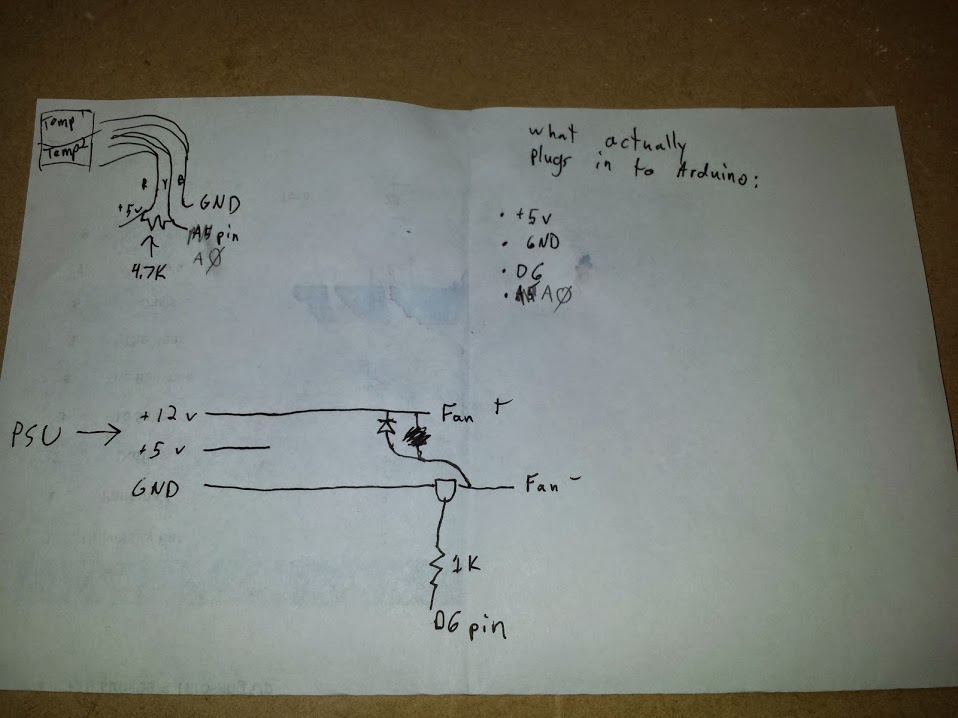 Temp 1
Temp 2
R Y B
+5v
GND
pin
AØ
4.7K
what actually
plugs in to Arduino:
• +5v
• GND
• D6
• AØ
PSU → +12 v
+5 v
GND
Fan +
Fan -
1K
D6 pin